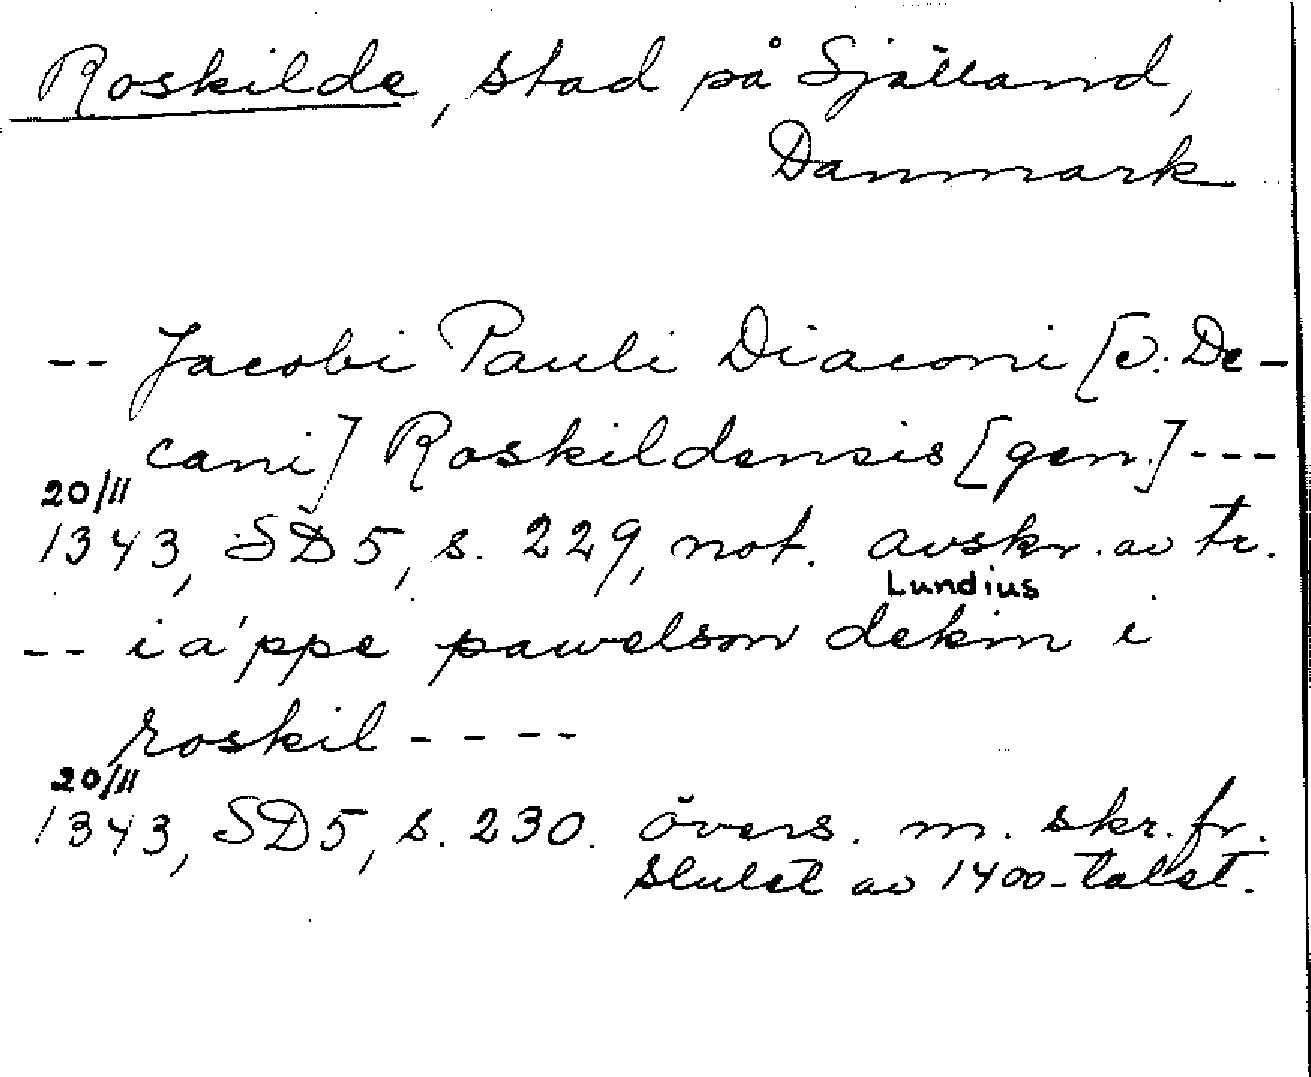 Roskilde, stad på Själland,
Danmark
-- Jacobi Pauli Diaconi [ɔ: De-
cani] Roskildensis [gen.] ---
20/11
1343, SD 5, s. 229, not. avskr. av tr.
Lundius
-- iáppe pawelson dekin i
roskil ----
20/11
1343, SD 5, s. 230. övers. m. skr. fr.
slutet av 1400-talet.